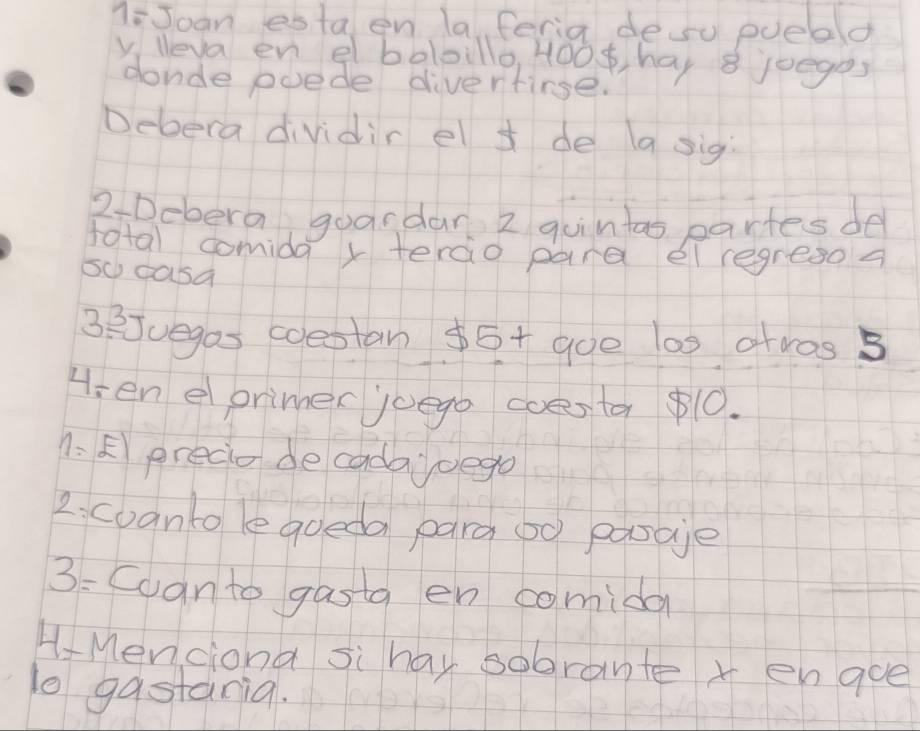 1-Joan esta en la feria de su pueblo
y lleva en el bolsillo, 400$, hay 8 joegos
donde poede divertirse.
Debera dividir el $ de la sig:
2-Debera goardar 2 quintas partes del
total comida y tercio para el regreso a
su casa
3-3 Juegos coestan $5+ que los otros 5
4-en el primer joego coesta $10.
1-El precio de cada joego
2-cuanto le queda para so pasaje
3-Cuanto gasta en comida
4-Menciona si hay sobrante y en que
lo gastaria.